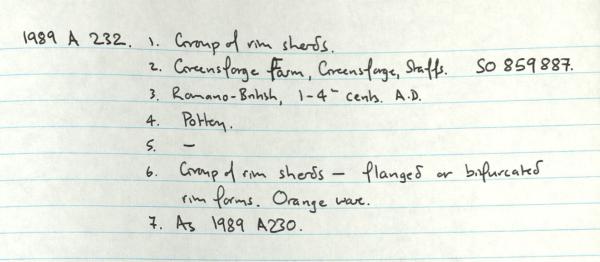 1989 A 232. 1. Group of rim sherds.
2. Greensforge Farm, Greensforge, Staffs. SO 859887.
3. Romano-British, 1-4th cents. A.D.
4. Pottery.
5. —
6. Group of rim sherds — flanged or bifurcated
rim forms. Orange ware.
7. As 1989 A230.